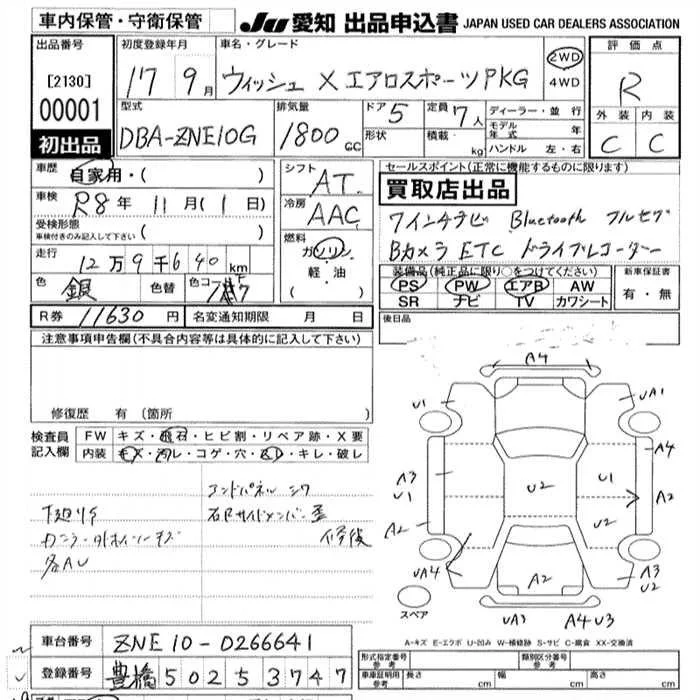 車内保管・守衛保管
JU 愛知 出品申込書 JAPAN USED CAR DEALERS ASSOCIATION
出品番号
[2130]
00001
初出品
初度登録年月
17 9月
車名・グレード
ウィッシュ X エアロスポーツPKG
2WD
4WD
評価点
R
外装 内装
C C
型式
DBA-ZNE10G
排気量
1800 CC
ドア 5
形状
定員 7人
積載 kg
ディーラー・並行
モデル年式 年
ハンドル 左・右
車歴
自家用・( )
車検
R8年 11月(1日)
受検形態
車検付きのみ記入して下さい ( )
走行
12万9千640km
色
銀
色替
色コード
シフト
AT
冷房
AAC
燃料
ガソリン
軽・油
( )
セールスポイント(正常に機能するものに限ります)
買取店出品
7インチナビ Bluetooth フルセグ
Bカメラ ETC ドライブレコーダー
装備品(純正品に限り○をつけてください)
PS PW エアB AW
SR ナビ TV カワシート
新車保証書
有・無
R券 11630円
名変通知期限 月 日
後日品
注意事項申告欄(不具合内容等は具体的に記入して下さい)
修復歴 有 (箇所
検査員記入欄
FW キズ・飛石・ヒビ割・リペア跡・X要
内装 キズ・汚レ・コゲ・穴・・キレ・破レ
下廻りサ
各AU
エンドパネル シワ
右Rサイドメンバー 歪
修復
A4
U1 UA1
A3 U1 A4
U1 A2
U2
A2 U2
UA4 A2 A3 U2
UA3 A4 U3
スペア
A-キズ E-エクボ U-凹み W-補修跡 S-サビ C-腐食 XX-交換済
車台番号 ZNE10-0266641
登録番号 豊橋 502 ５ 3747
形式指定番号 参考
類別区分番号 参考
車庫証明用 参考
長さ cm 幅 cm 高さ cm